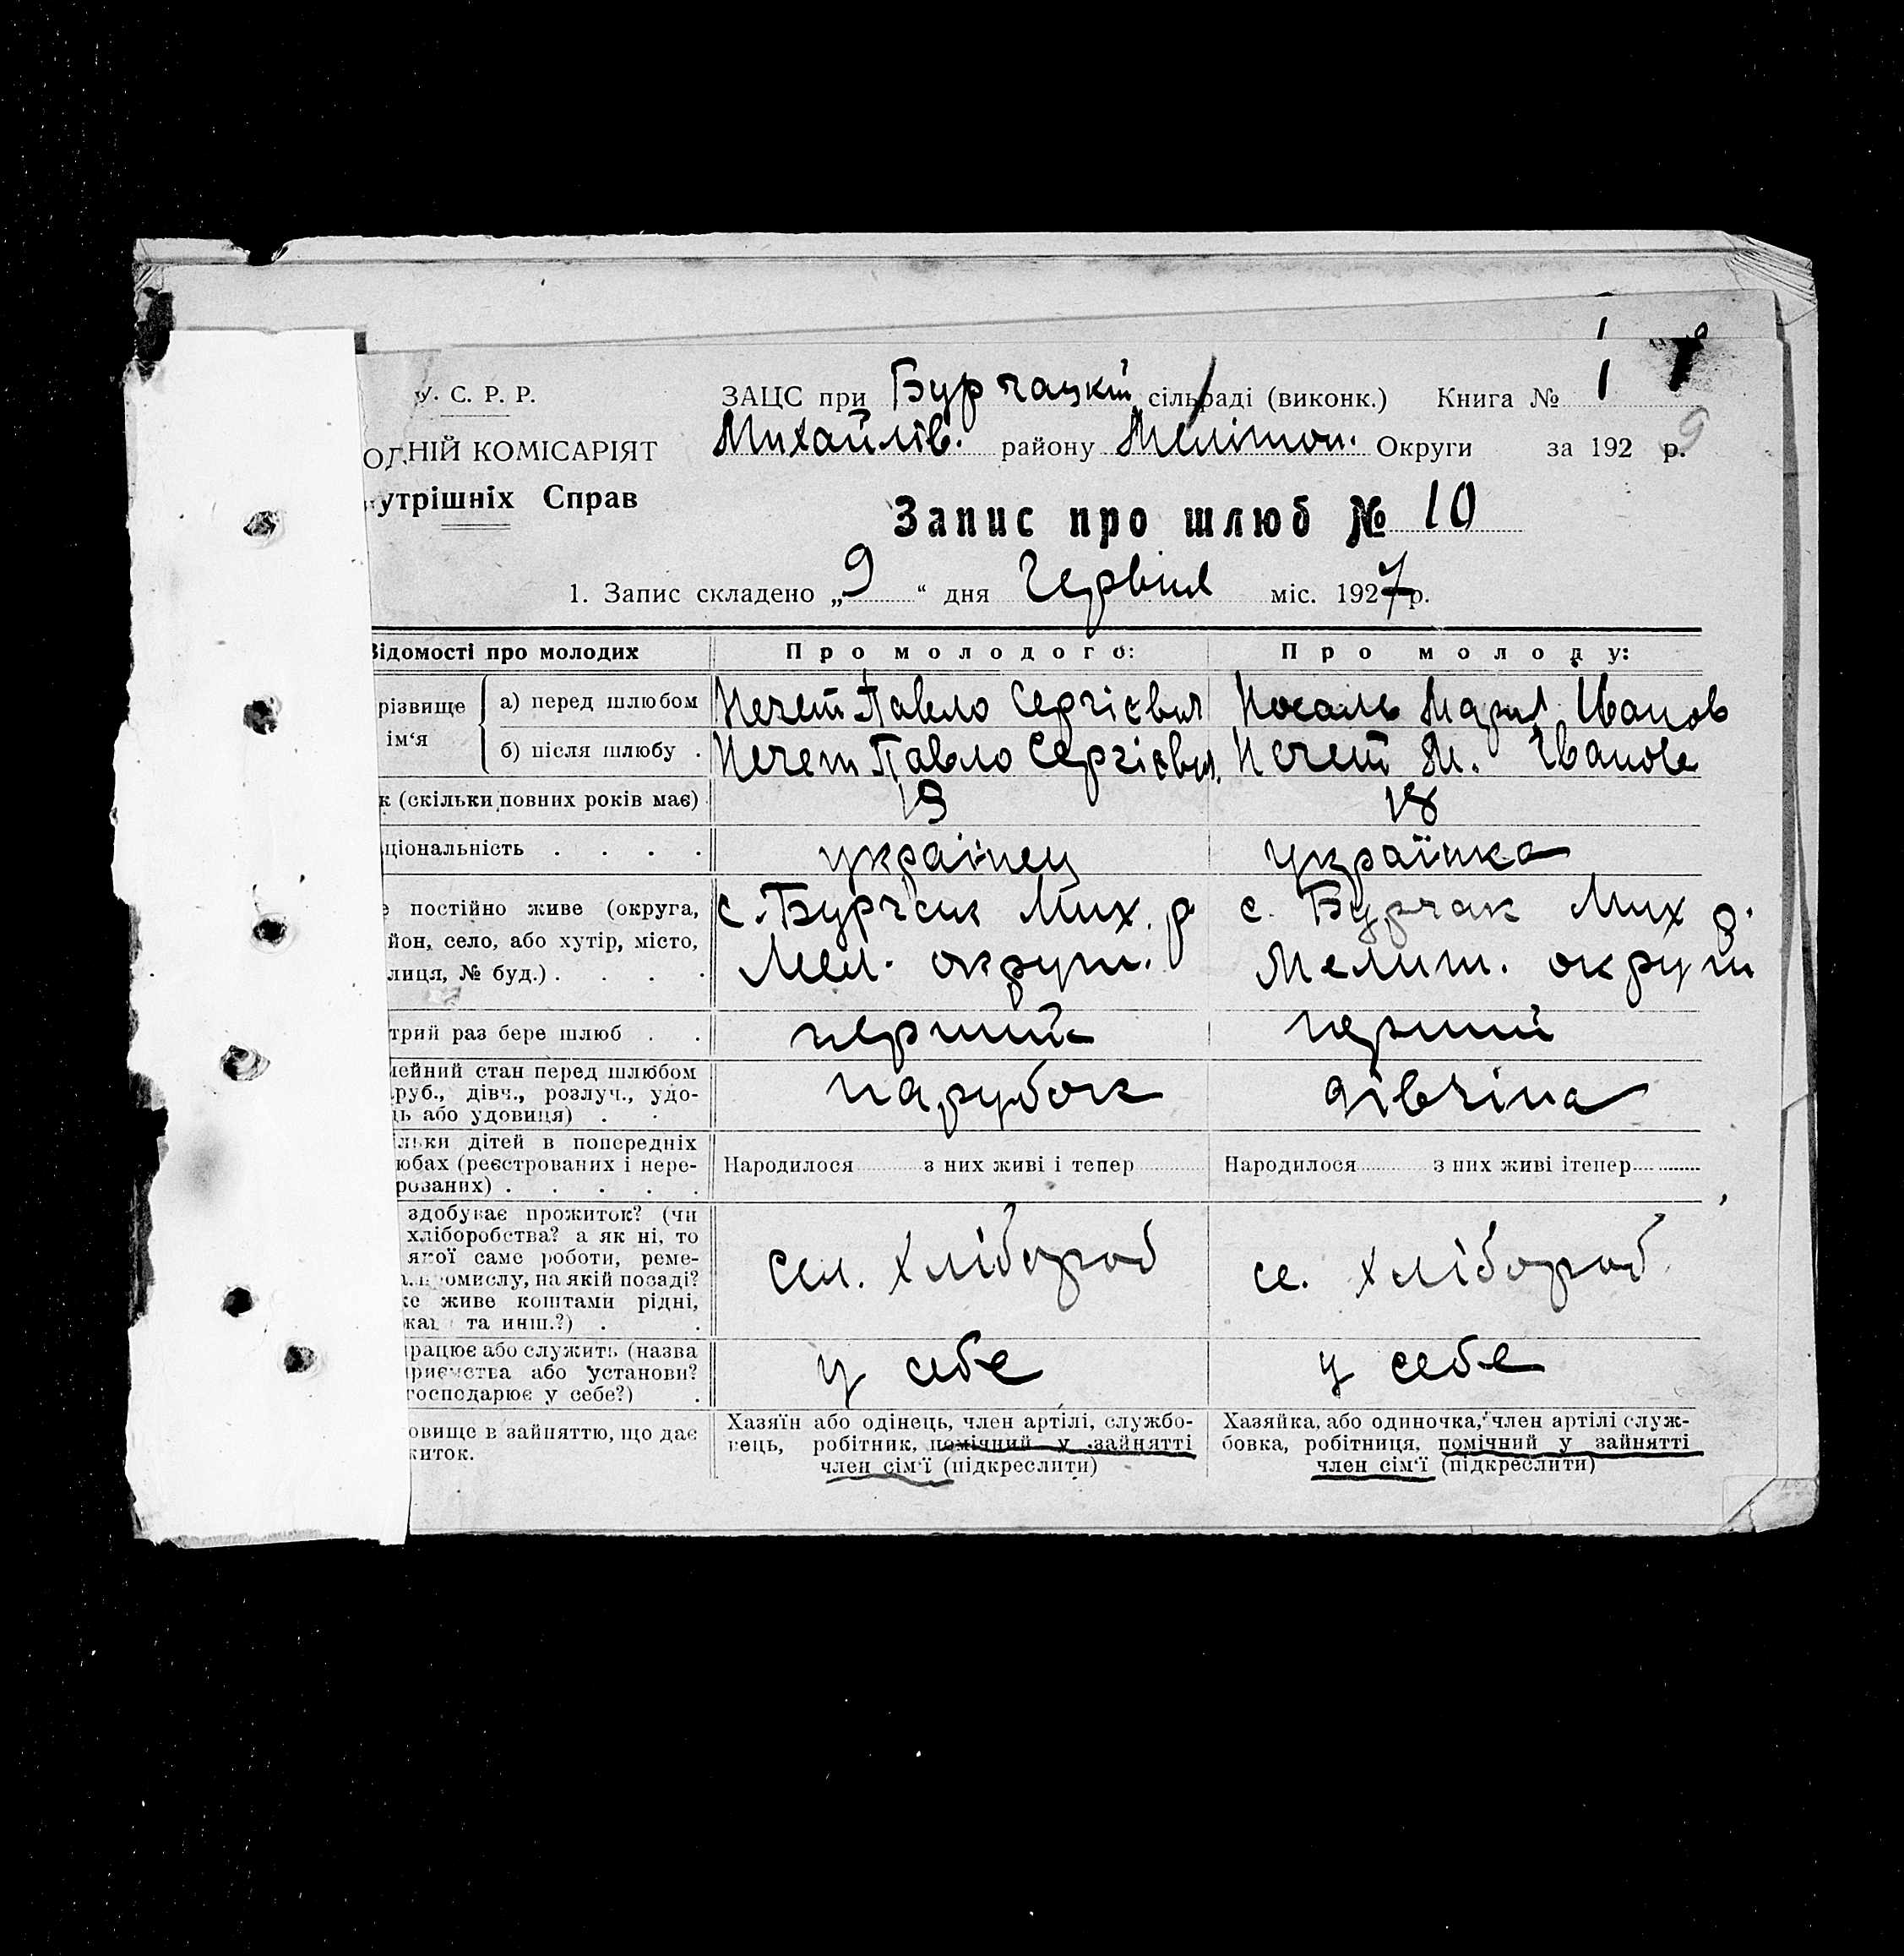 У. С. Р. Р.
ЗАЦС при Бурчацкій сільраді (виконк.) Книга № 1
ОДНІЙ КОМІСАРІЯТ
Михайлів. району Мелітоп. Округи за 192 р. 9
утрішніх Справ
Запис про шлюб № 10
1. Запис складено „9“ дня Червня міс. 1927 р.
Відомості про молодих
Про молодого:
Про молоду:
різвище
ім‘я
а) перед шлюбом
Нечет Павло Сергієвич
Носаль Марія Іванов
б) після шлюбу .
Нечет Павло Сергієвич.
Нечет М. Іванов
к (скільки повних років має)
19
18
ціональність . . . .
українец
українка
е постійно живе (округа,
йон, село, або хутір, місто,
лиця, № буд.) . . . .
с. Бурчак Мих. р
Мел. округи.
с. Бурчак Мих р.
Мелит. округи
трий раз бере шлюб . .
перший
перший
мейний стан перед шлюбом
руб., дівч., розлуч., удо-
ць або удовиця) . .
парубок
дівчіна
ільки дітей в попередніх
юбах (реєстрованих і нере-
рованих) . . . . .
Народилося з них живі і тепер
Народилося з них живі ітепер
здобуває прожиток? (чи
хліборобства? а як ні, то
якої саме роботи, реме-
а, промислу, на якій посаді?
же живе коштами рідні,
та инш.?) . .
сел. хлібороб
се. хлібороб
рацює або служить (назва
приємства або установи?
господарює у себе?) .
у себе
у себе
овище в зайняттю, що дає
житок.
Хазяїн або одінець, член артілі, службо-
вець, робітник, помічний у зайнятті
член сім‘ї (підкреслити)
Хазяйка, або одиночка, член артілі служ-
бовка, робітниця, помічний у зайнятті
член сім‘ї (підкреслити)